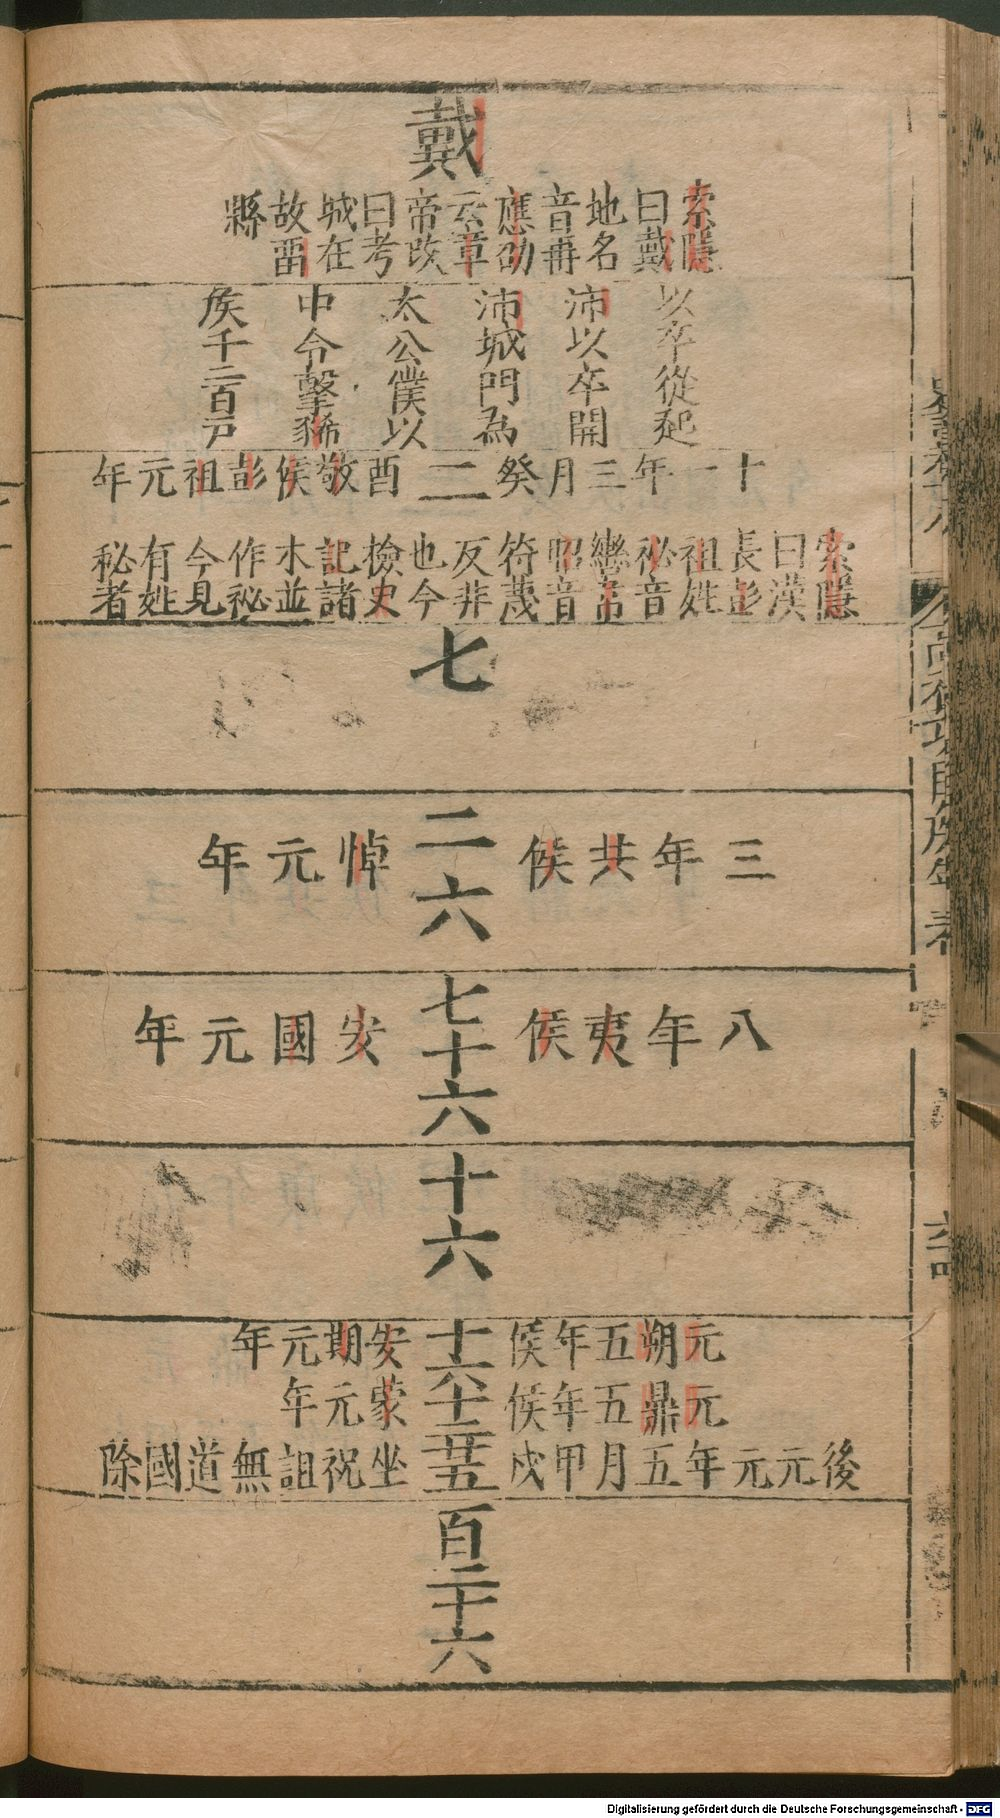 戴
索隱
曰戴
地名
音再
應劭
云章
帝改
曰考
城在
故畱
縣
以卒從起
沛以卒開
沛城門為
太公僕以
中令擊豨
侯千二百戸
十一年三月癸二酉敬侯彭祖元年
索隱
曰漢
長彭
祖姓
祕音
轡韋
昭音
符蔑
反非
也今
檢史
記諸
木並
作祕
今見
有姓
秘者
七
三年共侯二六悼元年
八年夷侯七十六安國元年
十六
元朔五年侯十六安期元年
元鼎五年侯十二蒙元年
後元元年五月甲戌廿五坐祝詛無道國除
百二十六
Digitalisierung gefördert durch die Deutsche Forschungsgemeinschaft - DFG